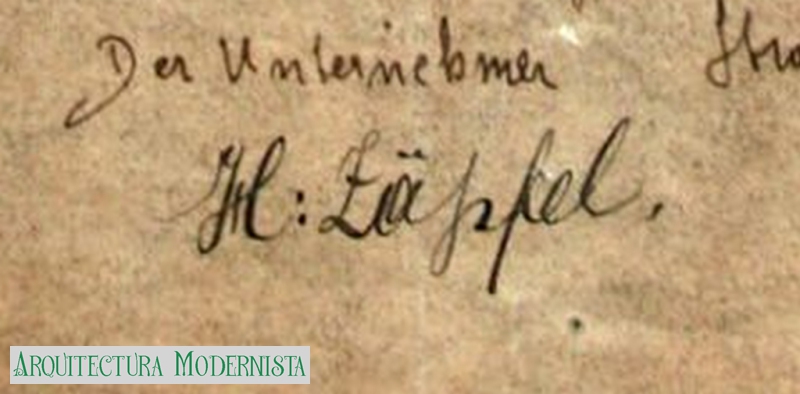 Der Unternehmer
H: Zäpfel.
Arquitectura Modernista